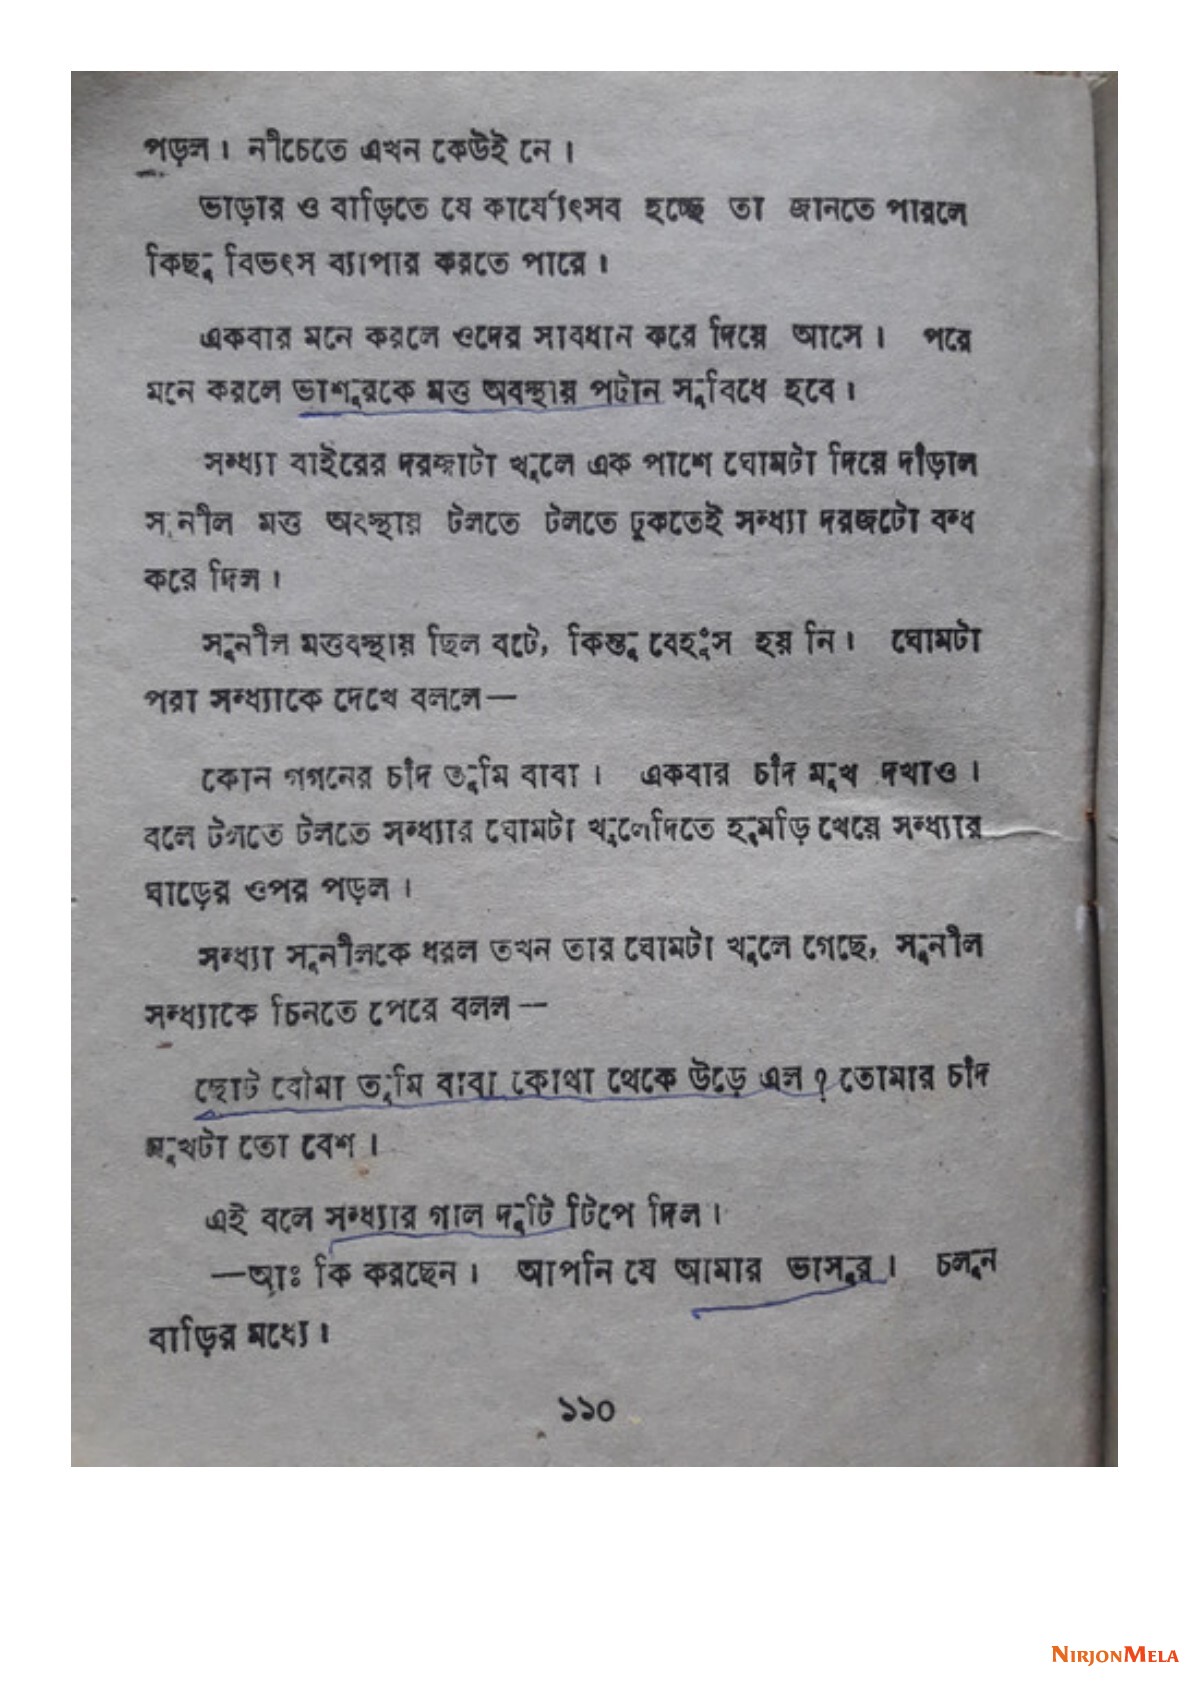 পড়ল। নীচেতে এখন কেউই নে।
ভাড়ার ও বাড়িতে যে কার্যোৎসব হচ্ছে তা জানতে পারলে
কিছু বিভৎস ব্যাপার করতে পারে।
একবার মনে করলে ওদের সাবধান করে দিয়ে আসে। পরে
মনে করলে ভাশুরকে মত্ত অবস্থায় পটান সুবিধে হবে।
সন্ধ্যা বাইরের দরজাটা খুলে এক পাশে ঘোমটা দিয়ে দাঁড়াল
সুনীল মত্ত অংস্থায় টলতে টলতে ঢুকতেই সন্ধ্যা দরজটো বন্ধ
করে দিল।
সুনীল মত্তবস্থায় ছিল বটে, কিন্তু বেহুঁস হয় নি। ঘোমটা
পরা সন্ধ্যাকে দেখে বললে—
কোন গগনের চাঁদ তুমি বাবা। একবার চাঁদ মুখ দখাও।
বলে টলতে টলতে সন্ধ্যার ঘোমটা খুলেদিতে হুমড়ি খেয়ে সন্ধ্যার
ঘাড়ের ওপর পড়ল।
সন্ধ্যা সুনীলকে ধরল তখন তার ঘোমটা খুলে গেছে, সুনীল
সন্ধ্যাকে চিনতে পেরে বলল—
ছোট বৌমা তুমি বাবা কোথা থেকে উড়ে এল? তোমার চাঁদ
মুখটা তো বেশ।
এই বলে সন্ধ্যার গাল দুটি টিপে দিল।
—আঃ কি করছেন। আপনি যে আমার ভাসুর। চলুন
বাড়ির মধ্যে।
১১০
NIRJONMELA